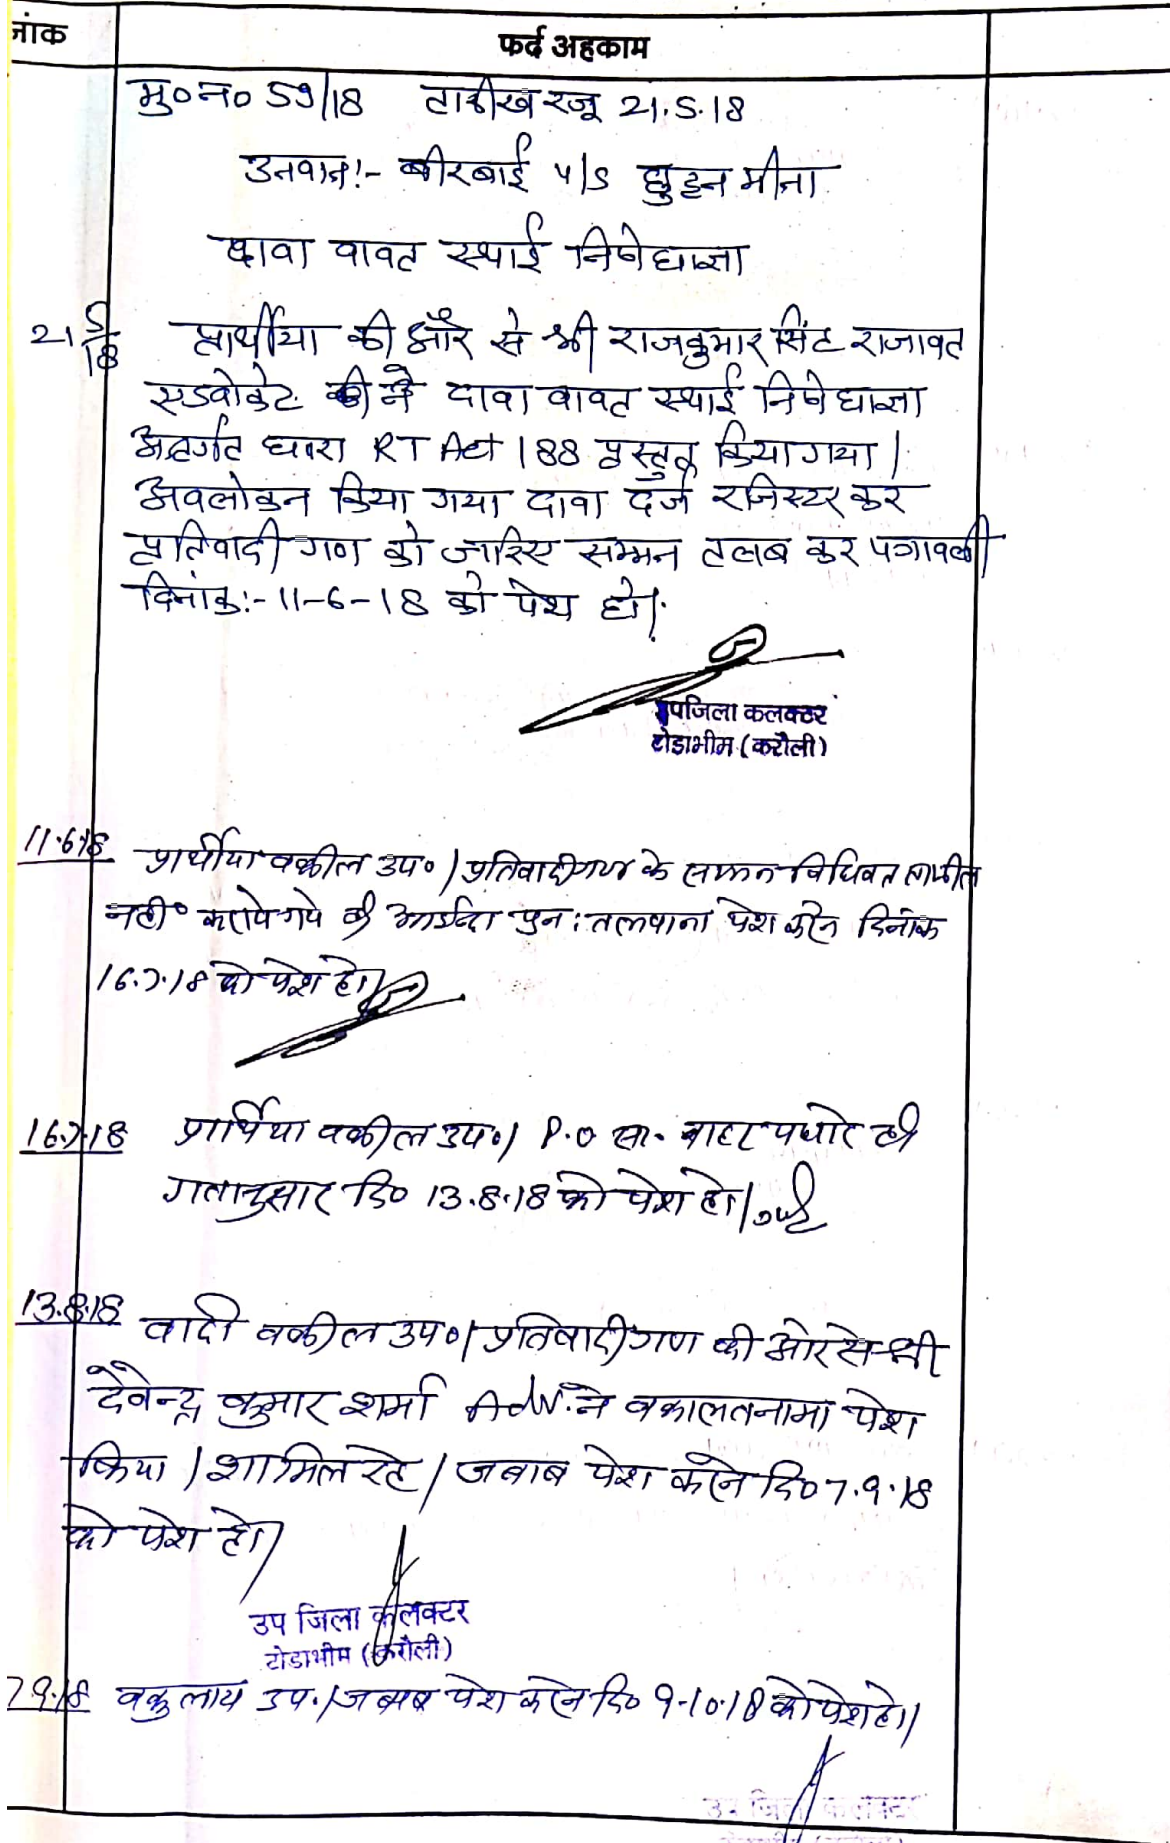 नांक फर्द अहकाम
मु०न० 59/18 तारीख रजू 21.5.18
उनवान:- बीरबाई v/s छुट्टन मीना
दावा वावत स्थाई निषेधाज्ञा
21 5/18 प्रार्थीया की और से श्री राजकुमार सिंह राजावत
एडवोकेट ने दावा वावत स्थाई निषेधाज्ञा
अन्तर्गत धारा RT Act 188 प्रस्तुत किया गया।
अवलोकन किया गया दावा दर्ज रजिस्टर कर
प्रतिवादी गण को जारिए सम्मन तलब कर पत्रावली
दिनांक:- 11-6-18 को पेश हो।
उपजिला कलक्टर
टोडाभीम (करौली)
11.6.18 प्रार्थीया वकील उप०/प्रतिवादीगण के सम्मन विधिवत तामील
नही कराये गये की आईंदा पुन: तलवाना पेश करने दिनांक
16.7.18 को पेश हो।
16.7.18 प्रार्थिया वकील उप०/ P.O सा. बाहर पधारे की
गतानुसार दि० 13.8.18 को पेश हो।
13.8.18 वादी वकील उप०/प्रतिवादीगण की ओर से श्री
देवेन्द्र कुमार शर्मा Adv. ने वकालतनामा पेश
किया / शामिल रहे / जबाब पेश करने दि० 7.9.18
को पेश हो।
उप जिला कलक्टर
टोडाभीम (करौली)
7.9.18 वकुलाय उप०/जबाब पेश करने दि० 9-10-18 को पेश हो।
उप जिला कलक्टर